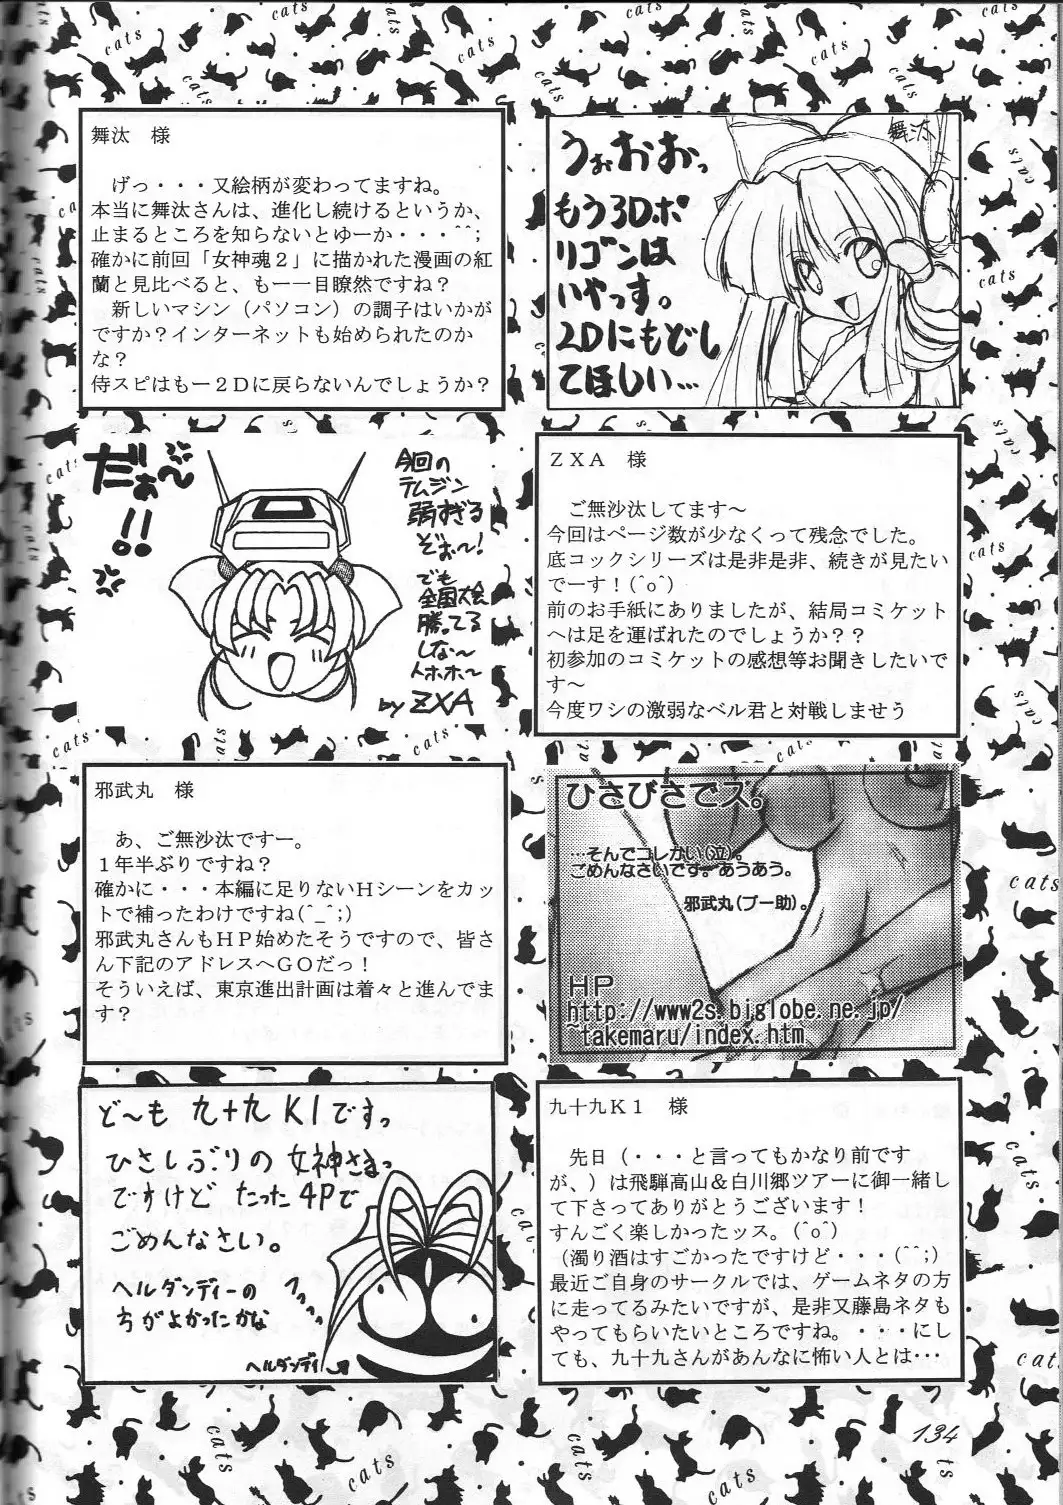 舞汰　様
げっ・・・又絵柄が変わってますね。
本当に舞汰さんは、進化し続けるというか、
止まるところを知らないとゆーか・・・^^;
確かに前回「女神魂２」に描かれた漫画の紅
蘭と見比べると、もー一目瞭然ですね？
新しいマシン（パソコン）の調子はいかが
ですか？インターネットも始められたのか
な？
侍スピはもー２Ｄに戻らないんでしょうか？
舞汰
うぉおおっ
もう3Dポ
リゴンは
いやっす。
2Dにもどし
てほしい…
だぁ〜!!
今回の
テムジン
弱すぎる
ぞぉ〜!
でも
全国大会
勝ってる
しな〜
by ZXA
ＺＸＡ　様
ご無沙汰してます〜
今回はページ数が少なくって残念でした。
底コックシリーズは是非是非、続きが見たい
でーす！(^o^)
前のお手紙にありましたが、結局コミケット
へは足を運ばれたのでしょうか？？
初参加のコミケットの感想等お聞きしたいで
す〜
今度ワシの激弱なベル君と対戦しませう
邪武丸　様
あ、ご無沙汰ですー。
１年半ぶりですね？
確かに・・・本編に足りないＨシーンをカッ
トで補ったわけですね(^_^;)
邪武丸さんもＨＰ始めたそうですので、皆さ
ん下記のアドレスへＧＯだっ！
そういえば、東京進出計画は着々と進んでま
す？
ひさびさでス。
…そんでコレかい(泣)。
ごめんなさいです。あうあう。
邪武丸(ブー助)。
HP
http://www2s.biglobe.ne.jp/
~takemaru/index.htm
ど〜も 九十九 K1ですっ
ひさしぶりの 女神さまっ
ですけど たった 4Pで
ごめんなさい。
ヘルダンディーの
方がよかったかな
ヘルダンディ
九十九Ｋ１　様
先日（・・・と言ってもかなり前です
が、）は飛騨高山＆白川郷ツアーに御一緒し
て下さってありがとうございます！
すんごく楽しかったッス。(^o^)
（濁り酒はすごかったですけど・・・(^^;)
最近ご自身のサークルでは、ゲームネタの方
に走ってるみたいですが、是非又藤島ネタも
やってもらいたいところですね。・・・にし
ても、九十九さんがあんなに怖い人とは・・・
134
cats